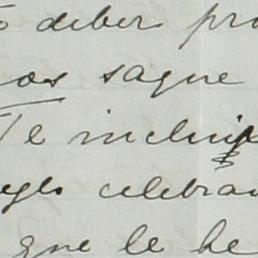 deber pro
nos saque
Te inclui
celebra
que le he